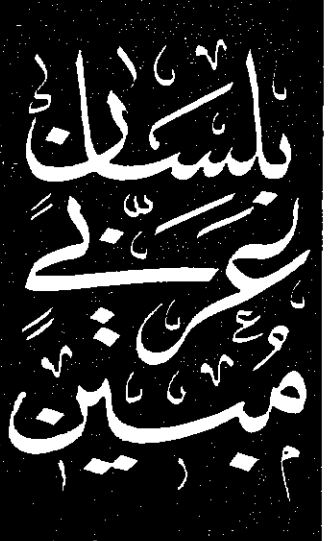 بِلِسَانٍ
عَرَبِيٍّ
مُبِينٍ